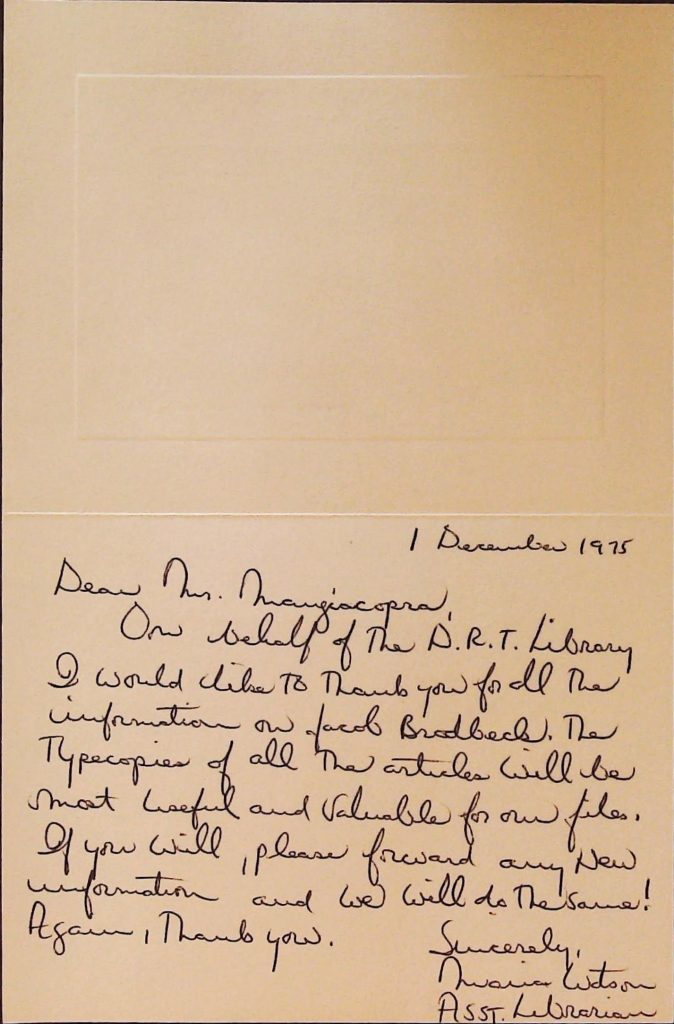 1 December 1975
Dear Mr. Mangiacopra,
On behalf of the D.R.T. Library
I would like to thank you for all the
information on Jacob Brodbeck. The
Typecopies of all the articles will be
most useful and valuable for our files.
If you will, please forward any new
information and we will do the same!
Again, thank you.
Sincerely,
Watson
Asst. Librarian